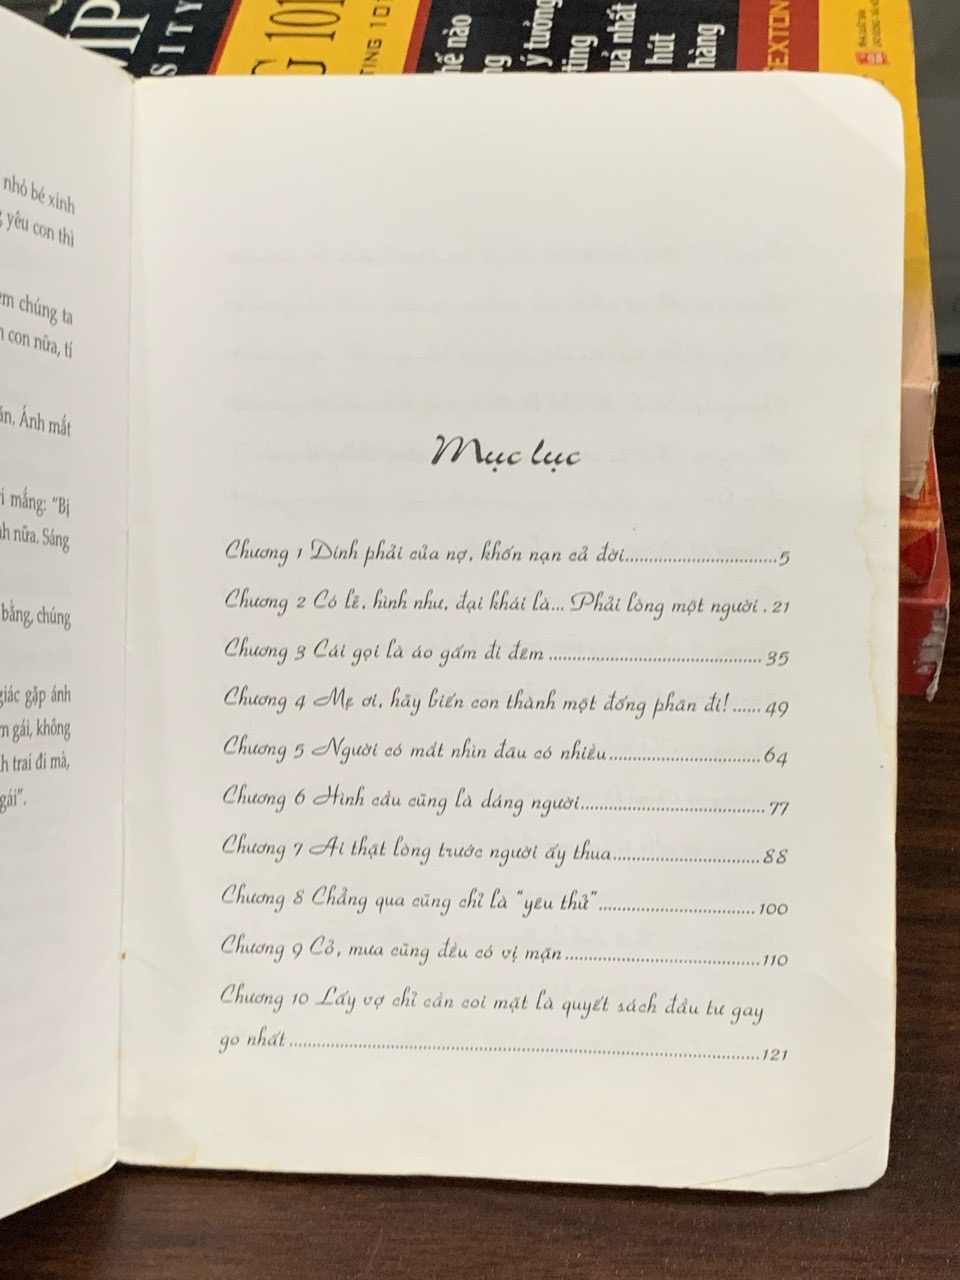 nhỏ bé xinh
yêu con thì
em chúng ta
con nữa, tí
Ánh mắt
mắng: “Bị
nữa. Sáng
bằng, chúng
giác gặp ánh
gái, không
trai đi mà,
gái”.
Mục lục
Chương 1 Dính phải của nợ, khốn nạn cả đời.......5
Chương 2 Có lẽ, hình như, đại khái là... Phải lòng một người . 21
Chương 3 Cái gọi là áo gấm đi đêm.......35
Chương 4 Mẹ ơi, hãy biến con thành một đống phân đi!......49
Chương 5 Người có mắt nhìn đâu có nhiều.......64
Chương 6 Hình cầu cũng là dáng người.......77
Chương 7 Ai thật lòng trước người ấy thua.......88
Chương 8 Chẳng qua cũng chỉ là “yêu thử”.......100
Chương 9 Cỏ, mưa cũng đều có vị mặn.......110
Chương 10 Lấy vợ chỉ cần coi mặt là quyết sách đầu tư gay
go nhất.......121
SITY
101
TING 101
thế nào
ý tưởng
quả nhất
hút
hàng
TEXTON